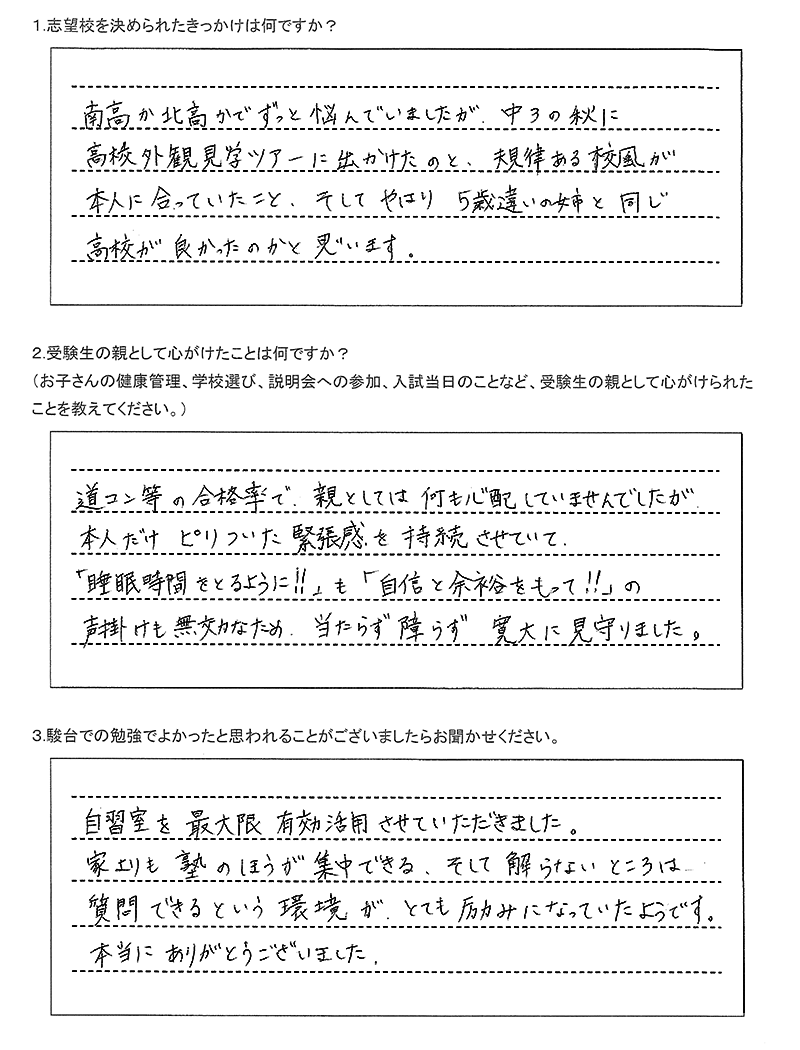 1.志望校を決められたきっかけは何ですか？
南高か北高かでずっと悩んでいましたが、中3の秋に
高校外観見学ツアーに出かけたのと、規律ある校風が
本人に合っていたこと、そしてやはり 5歳違いの姉と同じ
高校が良かったのかと思います。
2.受験生の親として心がけたことは何ですか？
（お子さんの健康管理、学校選び、説明会への参加、入試当日のことなど、受験生の親として心がけられた
ことを教えてください。）
道コン等の合格率で、親としては何も心配していませんでしたが、
本人だけ ピリついた緊張感を持続させていて、
「睡眠時間をとるように!!」も「自信と余裕をもって!!」の
声掛けも無効なため、当たらず障らず 寛大に見守りました。
3.駿台での勉強でよかったと思われることがございましたらお聞かせください。
自習室を最大限有効活用させていただきました。
家よりも塾のほうが集中できる、そして解らないところは
質問できるという環境が、とても励みになっていたようです。
本当にありがとうございました。